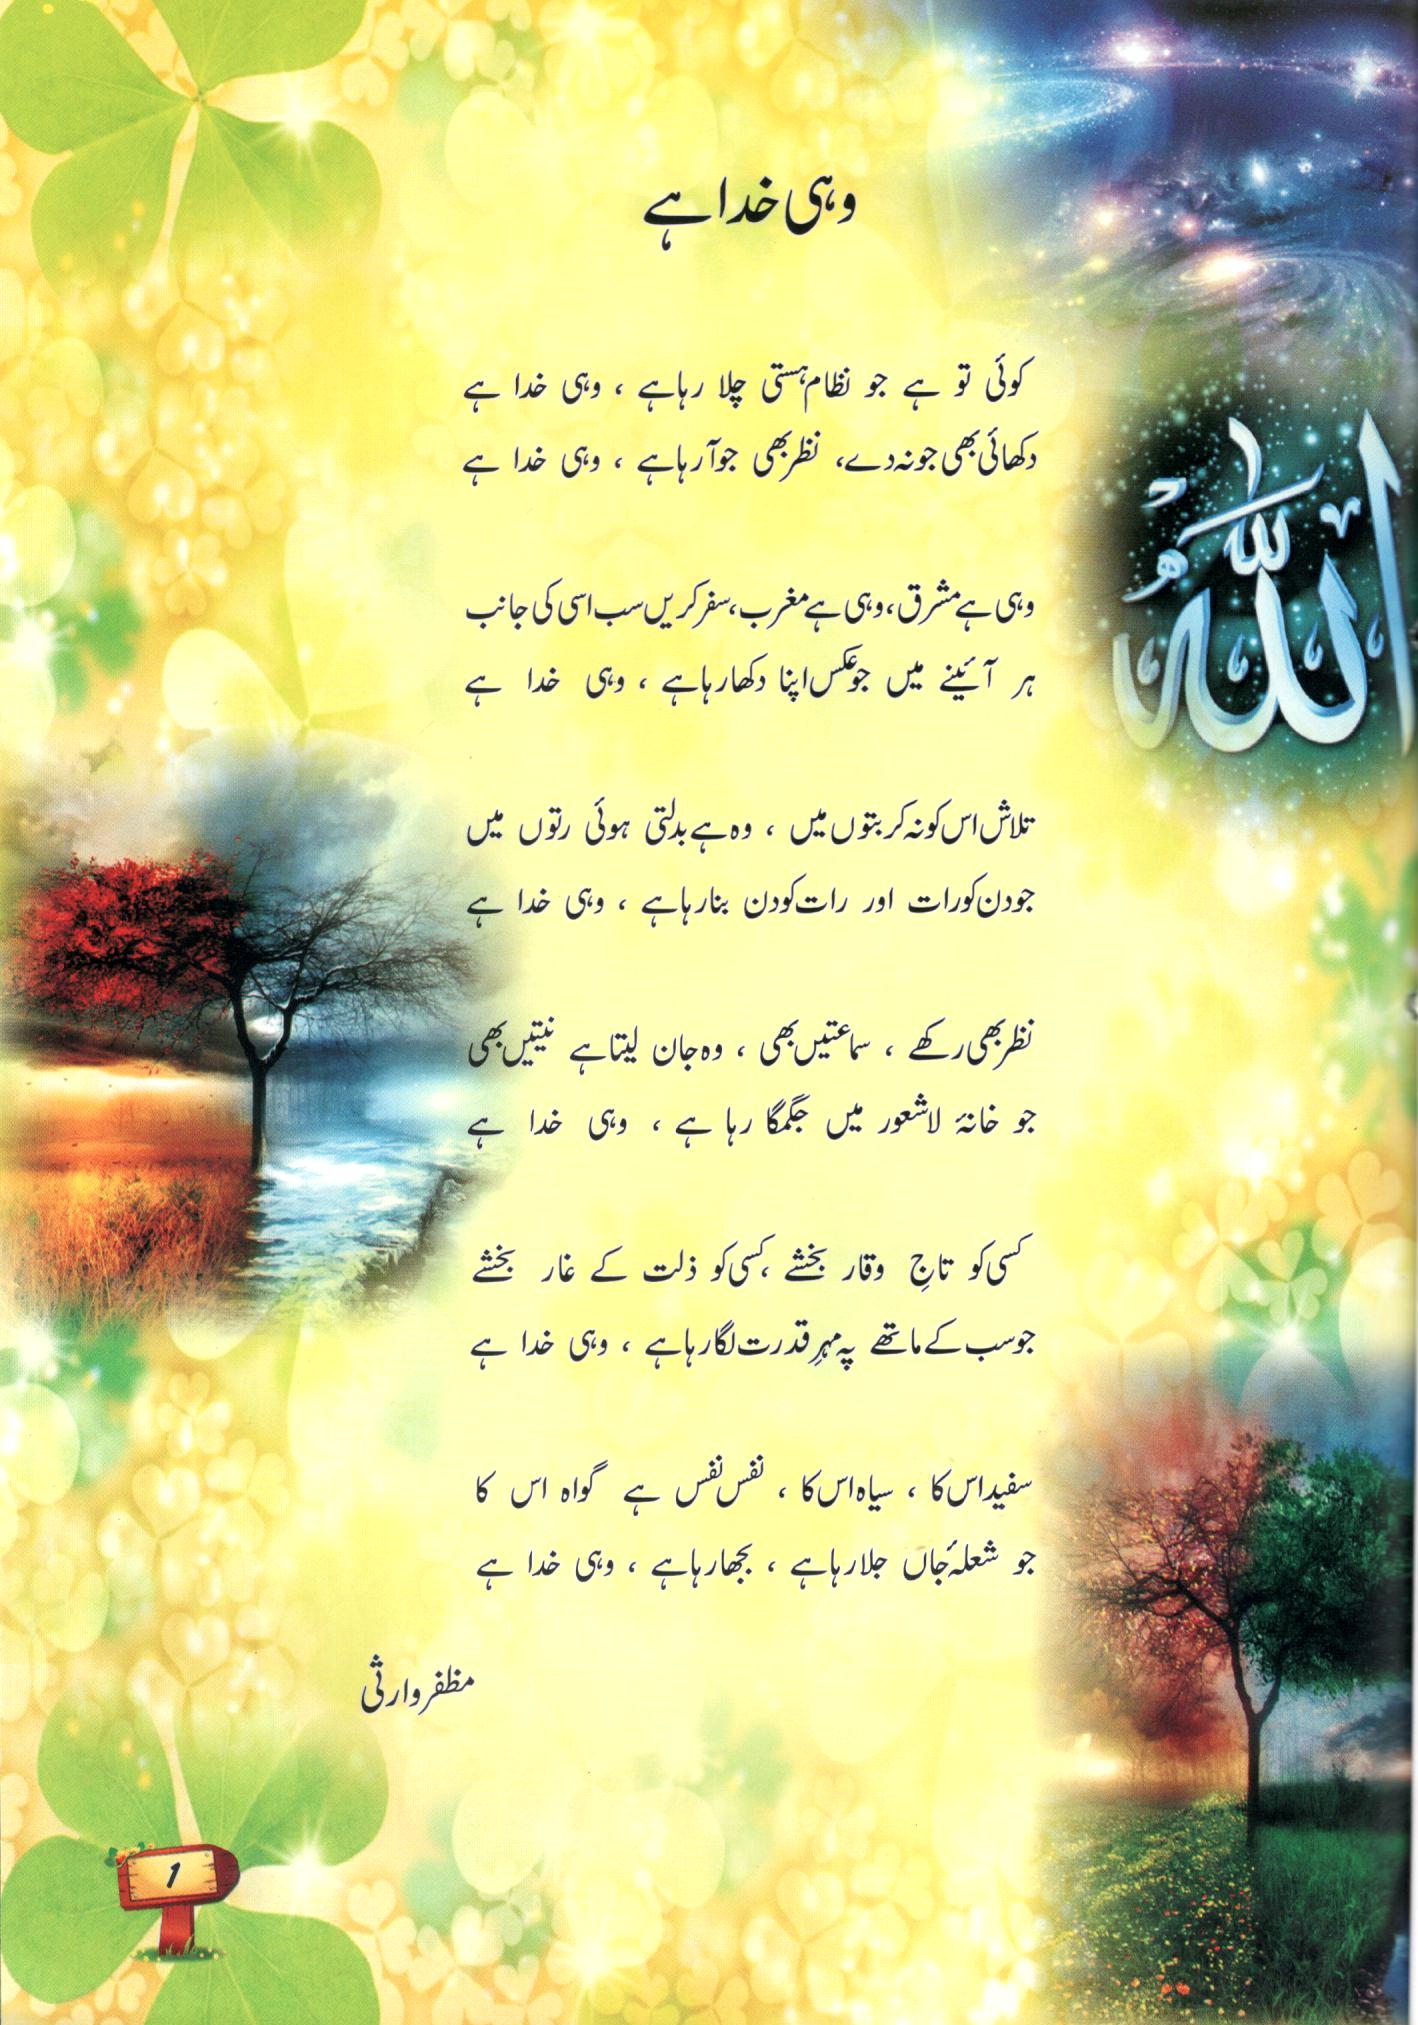 وہی خدا ہے
اللہ
کوئی تو ہے جو نظام ہستی چلا رہا ہے ، وہی خدا ہے
دکھائی بھی جو نہ دے، نظر بھی جو آ رہا ہے ، وہی خدا ہے
وہی ہے مشرق، وہی ہے مغرب، سفر کریں سب اسی کی جانب
ہر آئینے میں جو عکس اپنا دکھا رہا ہے ، وہی خدا ہے
تلاش اس کو نہ کر بتوں میں ، وہ ہے بدلتی ہوئی رتوں میں
جو دن کو رات اور رات کو دن بنا رہا ہے ، وہی خدا ہے
نظر بھی رکھے ، سماعتیں بھی ، وہ جان لیتا ہے نیتیں بھی
جو خانۂ لاشعور میں جگمگا رہا ہے ، وہی خدا ہے
کسی کو تاجِ وقار بخشے ، کسی کو ذلت کے غار بخشے
جو سب کے ماتھے پہ مہرِ قدرت لگا رہا ہے ، وہی خدا ہے
سفید اس کا ، سیاہ اس کا ، نفس نفس ہے گواہ اس کا
جو شعلۂ جاں جلا رہا ہے ، بجھا رہا ہے ، وہی خدا ہے
مظفر وارثی
1